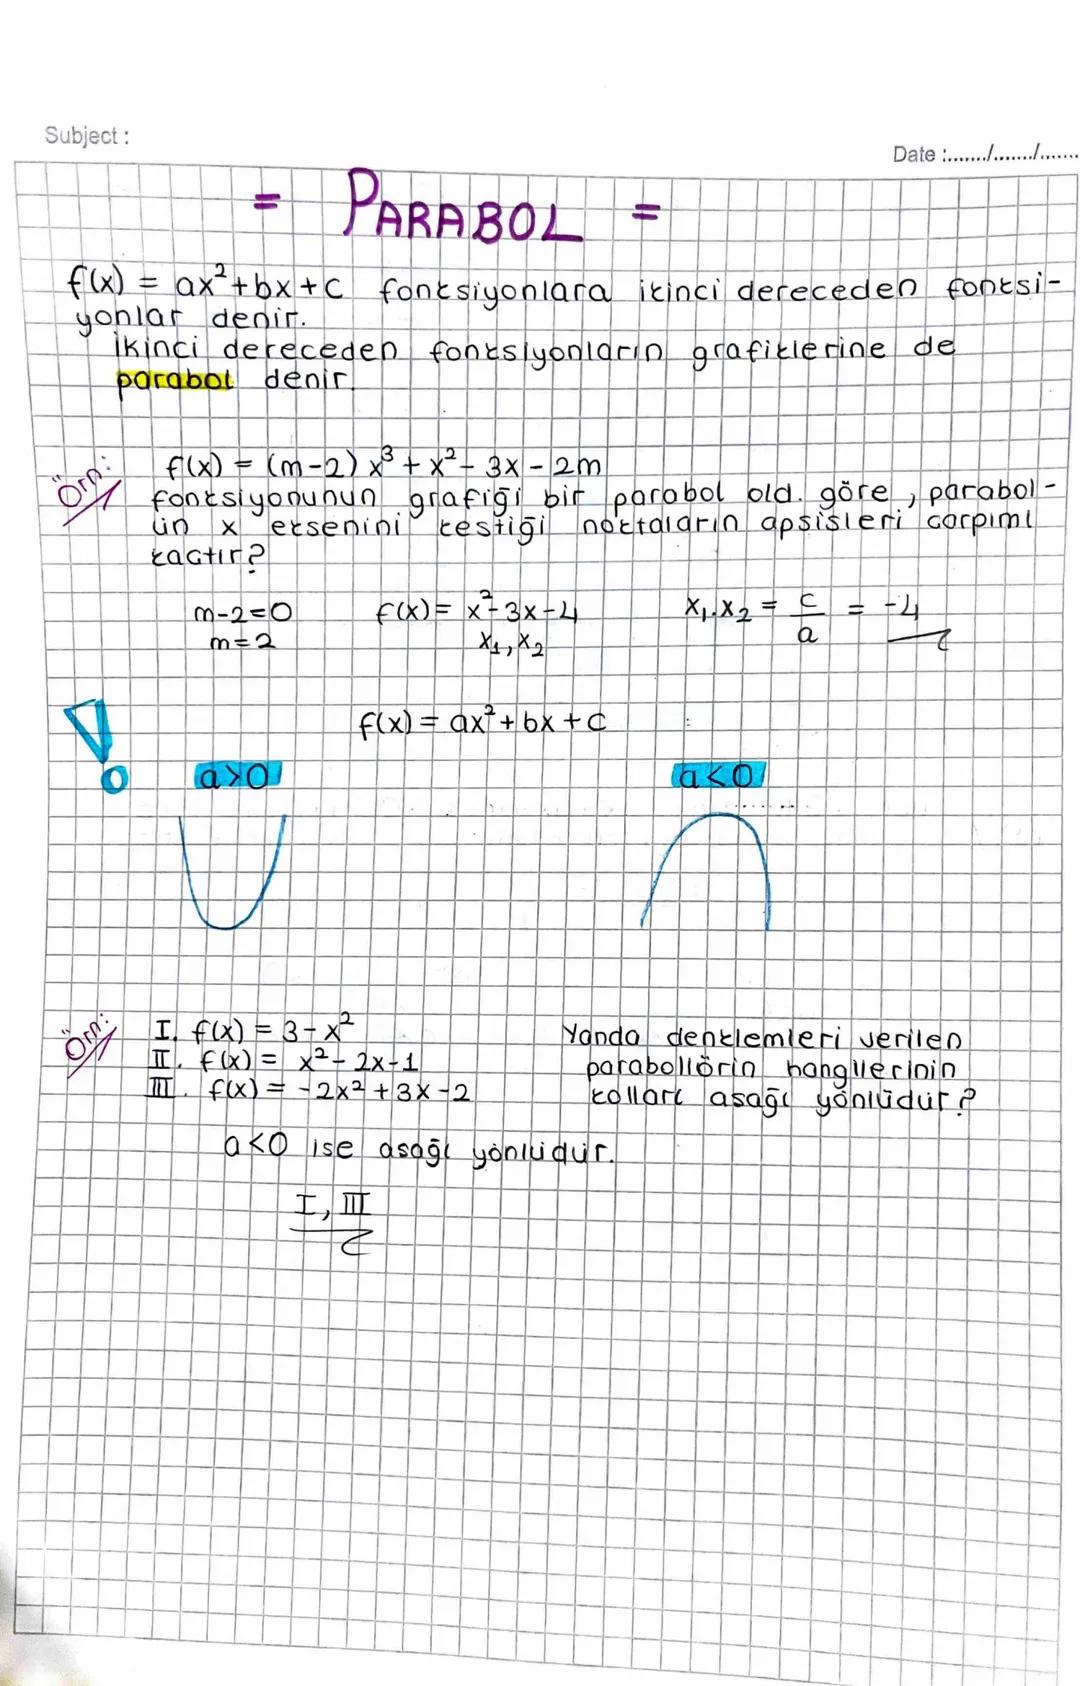 Subject :
Date :......./......./.......
= PARABOL =
f(x) = ax²+bx+c fonksiyonlara ikinci dereceden fonksi-
yonlar denir.
İkinci dereceden fonksiyonların grafiklerine de
parabol denir.
Örn:
f(x) = (m-2) x³ + x² - 3x - 2m
fonksiyonunun grafiği bir parabol old. göre, parabol-
ün x eksenini kestiği noktaların apsisleri çarpımı
kaçtır?
m-2=0 f(x) = x²-3x-4 x₁.x₂ = c/a = -4
m=2 x₁, x₂
! f(x) = ax²+bx+c
a>0 a<0
Örn:
I. f(x) = 3-x² Yanda denklemleri verilen
II. f(x) = x²-2x-1 parabollerin hangilerinin
III. f(x) = -2x²+3x-2 kolları aşağı yönlüdür?
a<0 ise aşağı yönlüdür.
I, III